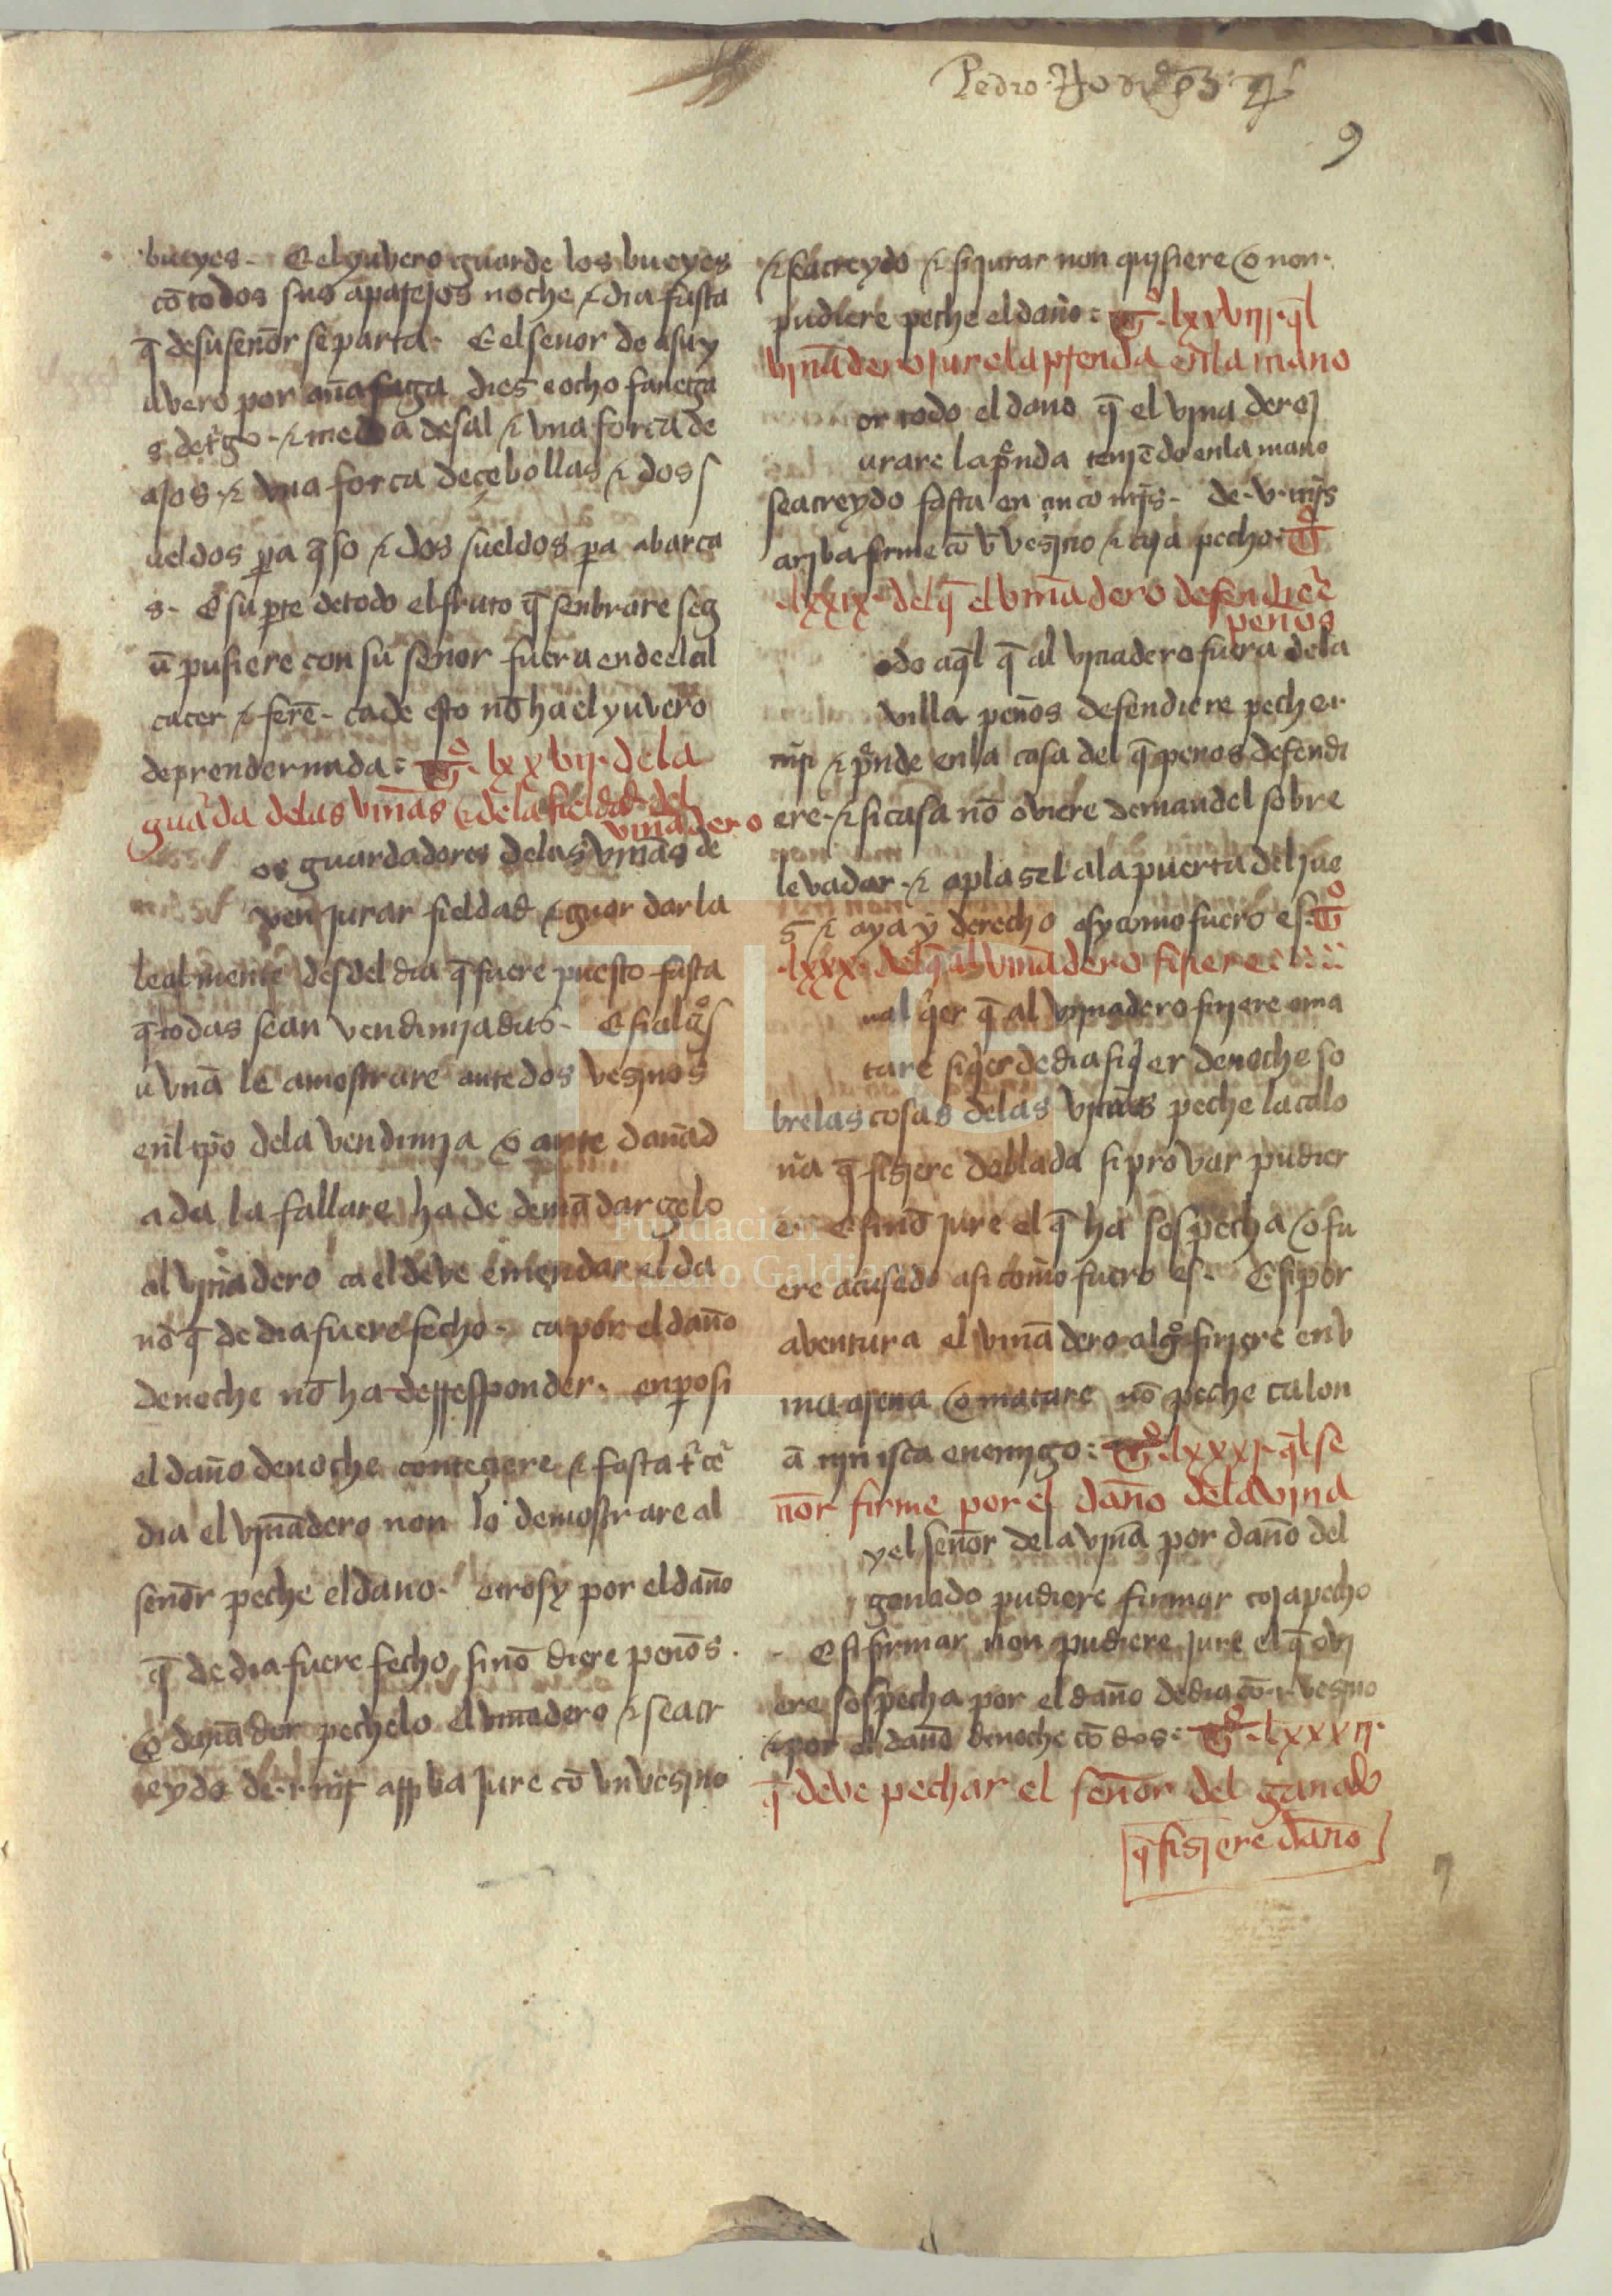 Pedro
9
bueyes. E el yuvero guarde los bueyes
cō todos sus aparejos noche ⁊ dia fasta
q̄ de su señor se parta. E el senor de a su y
uvero por anafaga dies e ocho fanega
s de tͥgo. ⁊ media de sal ⁊ una forca de
ajos. ⁊ una forca de çebollas ⁊ dos s
ueldos pa q̄so ⁊ dos sueldos pa abarca
s. E su pte de todo el fruto q̄ senbrare seg
ū pusiere con su señor fuera ende el al
cacer ⁊ ferē. ca de esto nō ha el yuvero
de prender nada: Tͦ. lxxvij. de la
guarda delas viñas ⁊ dela fieldad del
viñadero
os guardadores delas viñas de
ven jurar fieldad ⁊ guardar la
leal mente desdel dia q̄ fuere puesto fasta
q̄ todas sean vendimjadas. E si algͦ s
u viña le amostrare ante dos vesjnos
enl tpō dela vendimja o ante dañad
a da la fallare ha de demādar gelo
al vjñadero ca el deve emendar el da
ño q̄ de dia fuere fecho. ca por el daño
de noche nō ha de rresponder. enpo si
el daño de noche contegere ⁊ fasta tͥcͦ
dia el vjñadero non lo demostrare al
señor peche el dano. otrosy por el daño
q̄ de dia fuere fecho si nō diere peños.
o dañador pechelo el viñadero ⁊ sea cr
eydo de .i. mr̄ arriba jure cō un vesjno
⁊ sea creydo ⁊ si jurar non qujsiere o non
pudiere peche el daño: Tͦ. lxxviij. q̄l
vjñadero jure la prenda en la mano
or todo el dano q̄ el vjñaderoj
urare la pͥnda tenjēdo en la mano
sea creydo fasta en cinco mr̄s. de .v. mr̄s
arjba firme cō vͦ vesjno ⁊ coja pecho: Tͦ
.lxxix. del q̄ el viñadero defendiere
peños
odo aq̄l q̄ al vjñadero fuera de la
villa peños defendiere peche .i.
mr̄ ⁊ pͥnde en la casa del q̄ penos defendi
ere. ⁊ si casa nō oviere demandel sobre
levador. ⁊ aplasel a la puerta del jue
s ⁊ aya y derecho asy como fuero es. Tͦ
.lxxx. del q̄ al viñadero firiere
ual qͥer q̄ al vjñadero firjere o ma
tare siqͥer de dia siqͥer de noche so
bre las cosas delas vjñas peche la calo
ña q̄ fisiere doblada si provar pudier
e. E si nō jure el q̄ ha sospecha o fu
ere acusado asi como fuero es. E si por
aventura el viñadero algͦ firjere en v
ina ajena o matare nō peche calon
ā njn isca enemjgo: Tͦ. lxxxj. q̄l se
ñor firme por el daño dela vjña
y el señor dela vjña por daño del
ganado pudiere firmar coja pecho
. E si firmar non pudiere jure el q̄ ovj
ere sospecha por el daño de dia cō .i. vesjno
⁊ por el daño de noche cō dos: Tͦ. lxxxij.
q̄ deve pechar el señor del ganado
q̄ fisjere daño
Fundación
Lázaro Galdiano